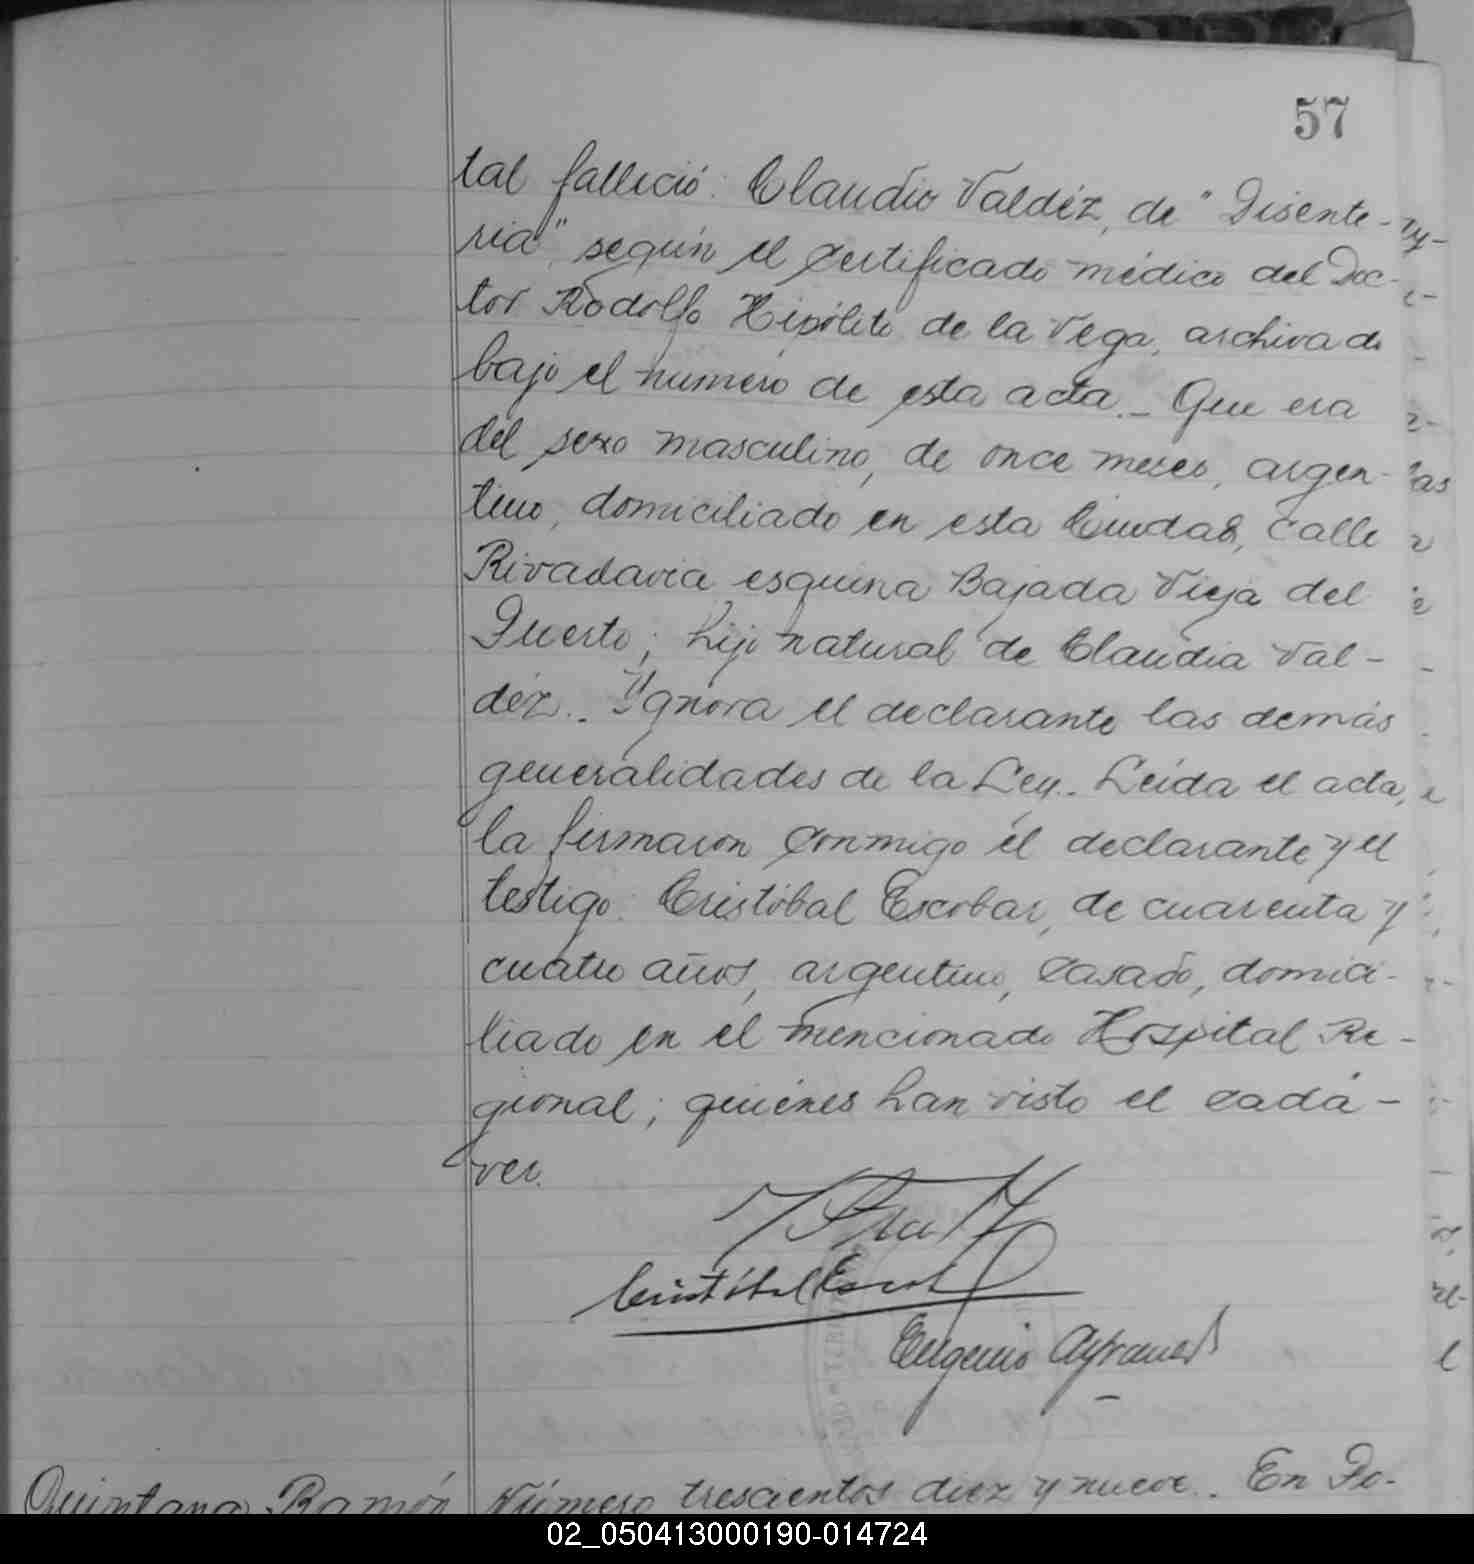 57
tal falleció: Claudio Valdéz, de "Disente-
ria" según el certificado médico del Doc-
tor Rodolfo Hipólito de la Vega, archivado
bajo el número de esta acta.- Que era
del sexo masculino, de once meses, argen-
tino, domiciliado en esta Ciudad, calle
Rivadavia esquina Bajada Vieja del
Puerto; hijo natural de Claudia Val-
déz.- Ygnora el declarante las demás
generalidades de la Ley.- Leída el acta,
la firmaron conmigo el declarante y el
testigo: Cristóbal Escobar, de cuarenta y
cuatro años, argentino, casado, domici-
liado en el mencionado Hospital Re-
gional; quiénes han visto el cadá-
ver.
Cristóbal Escob
Eugenio
Quintana Ramón
Número trescientos diez y nueve.- En Po-
02_050413000190-014724